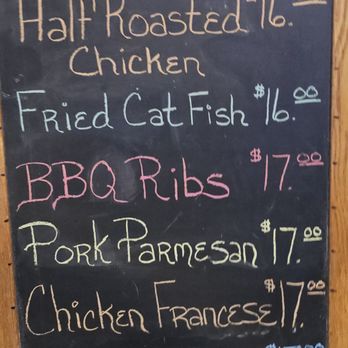 Half Roasted $16.00
Chicken
Fried Cat Fish $16.00
BBQ Ribs $17.00
Pork Parmesan $17.00
Chicken Francese $17.00